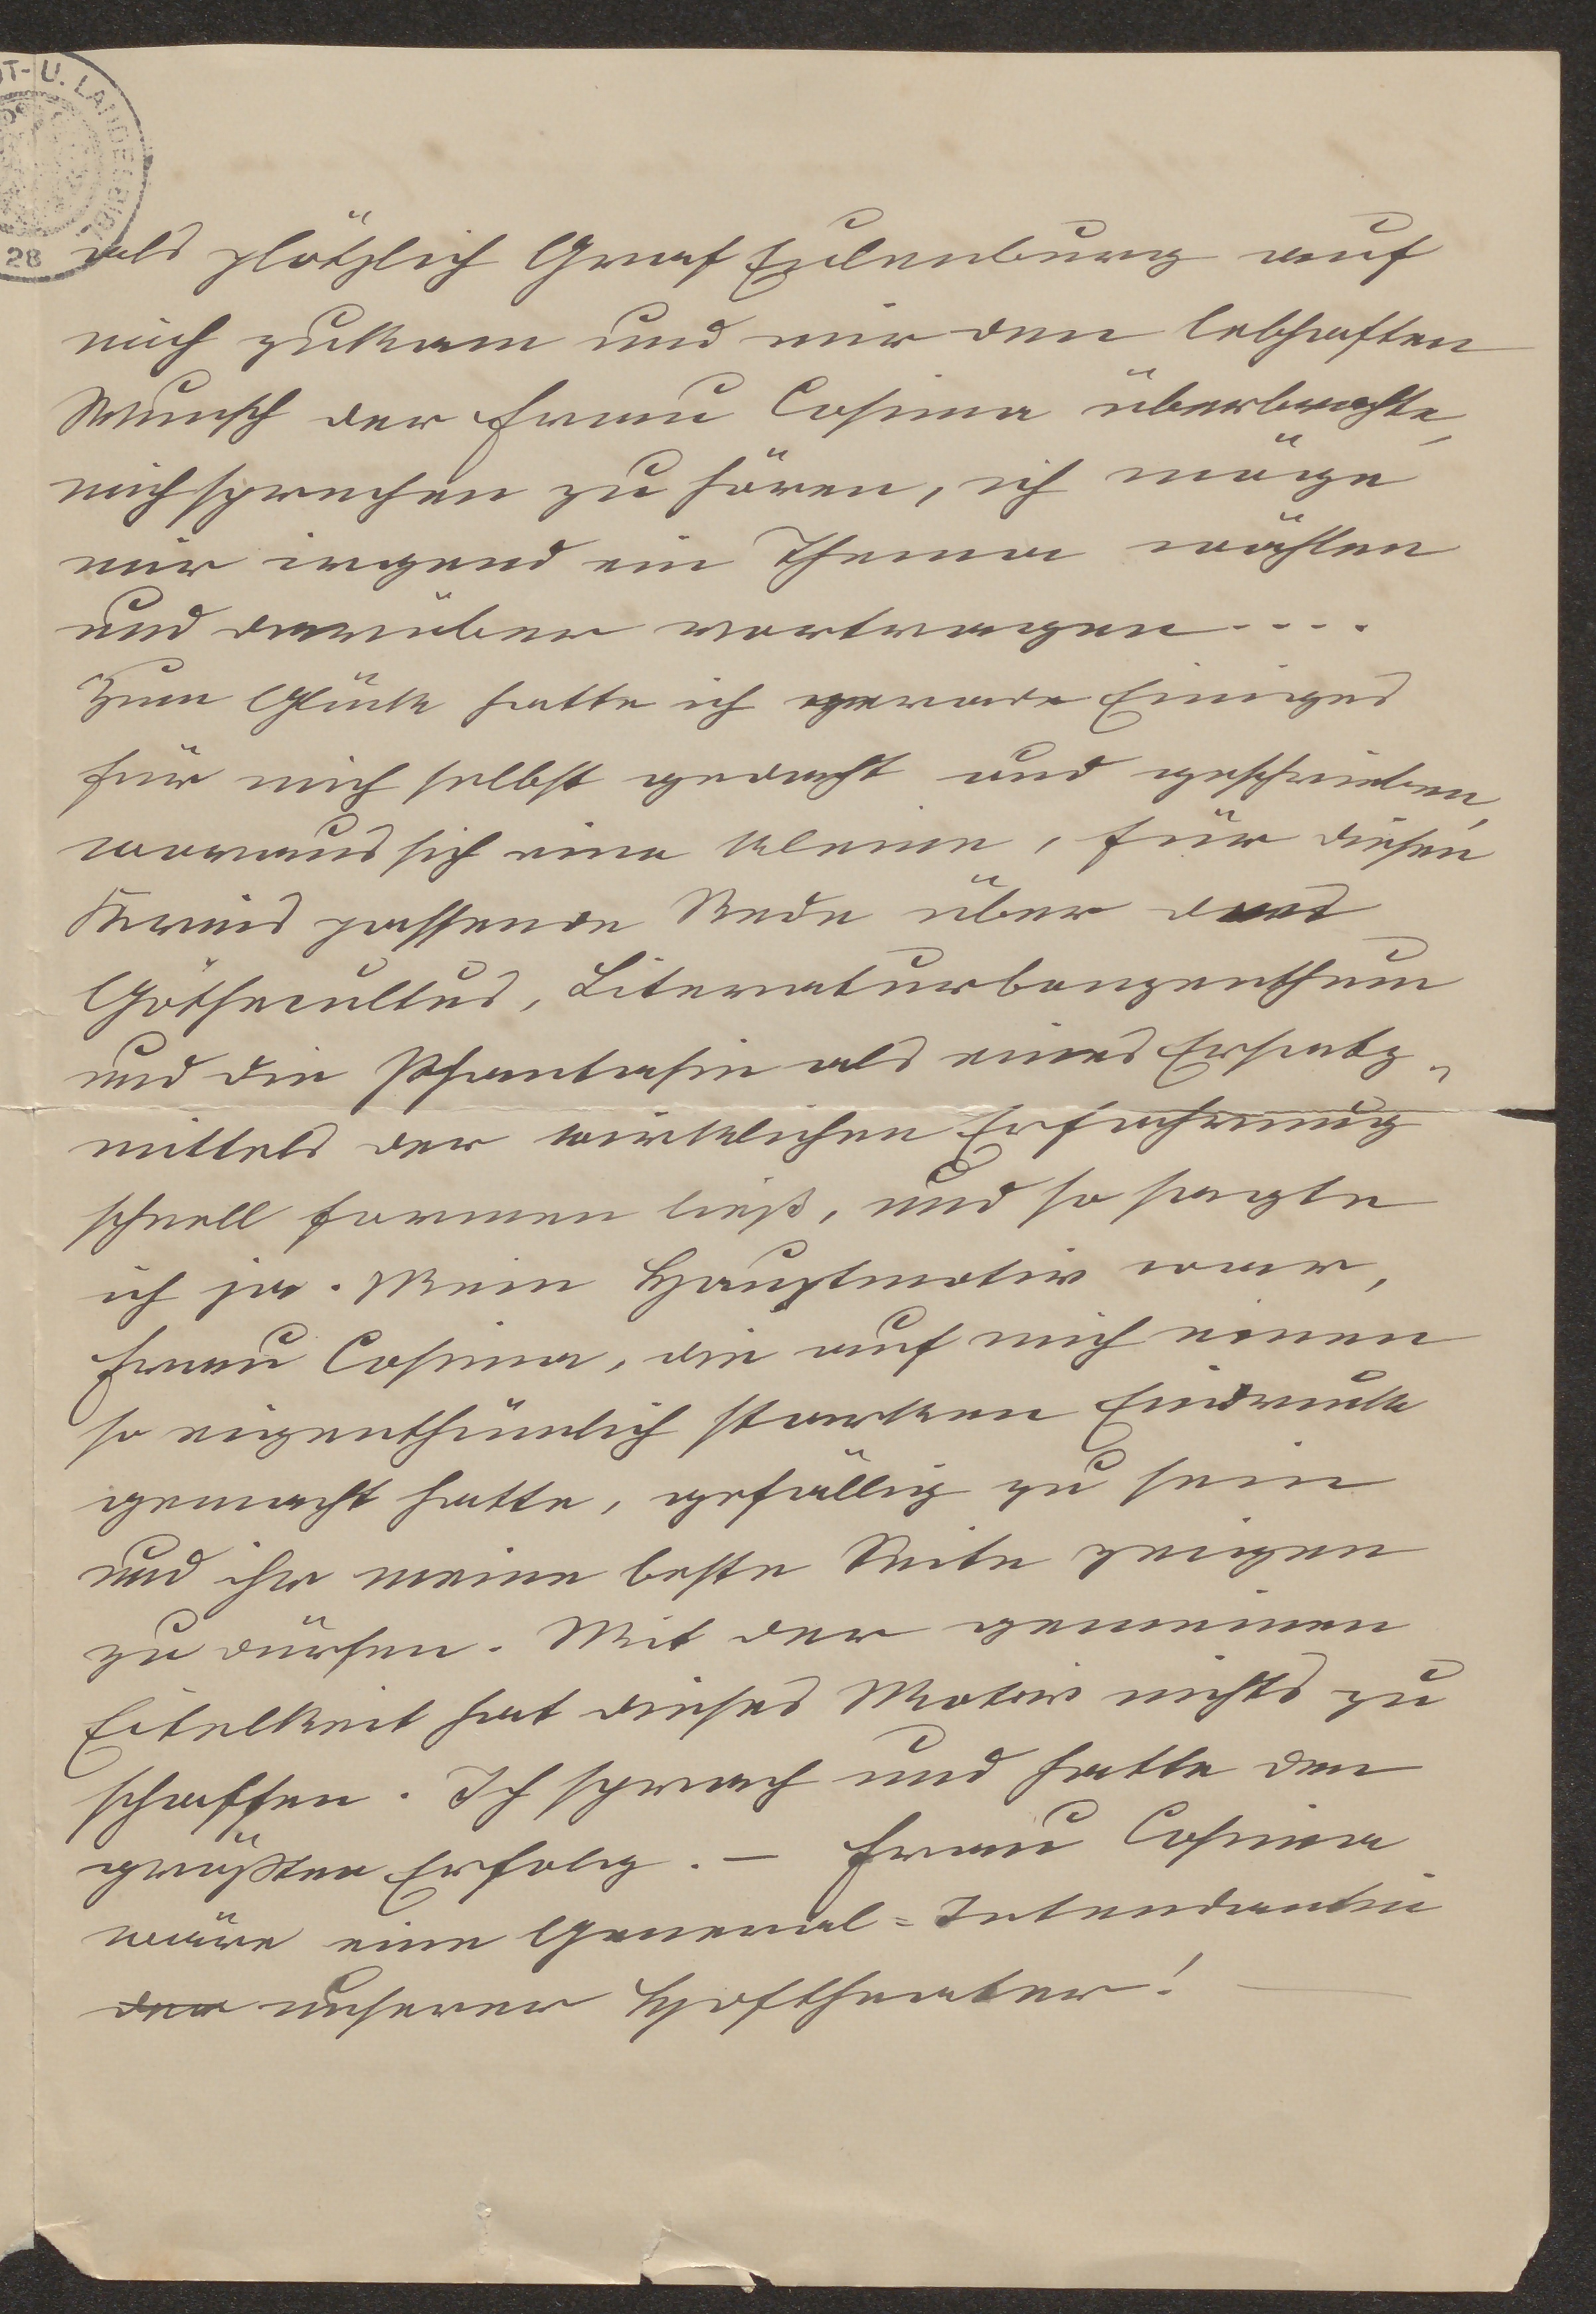 DT- U. LANDESBIBL
28
als plötzlich Graf Eulenburg auf
mich zukam und mir den lebhaften
Wunsch der Frau Cosima überbrachte,
mich sprechen zu hören, ich möge
mir irgend ein Thema wählen
und darüber vortragen....
Zum Glück hatte ich gerade Einiges
für mich selbst gedacht und geschrieben,
woraus sich eine kleine, für diesen
Kreis passende Rede über den
Göthecultus, Literaturbonzenthum
und die Phantasie als eines Ersatz-
mittels der wirklichen Erfahrung
schnell formen ließ, und so sagte
ich ja. Mein Hauptmotiv war,
Frau Cosima, die auf mich einen
so eigenthümlich starken Eindruck
gemacht hatte, gefällig zu sein
und ihr meine beste Seite zeigen
zu dürfen. Mit der gemeinen
Eitelkeit hat dieses Motiv nichts zu
schaffen. Ich sprach und hatte den
größten Erfolg. — Frau Cosima
wäre eine General-Intendantin
der unserer Hoftheater! —